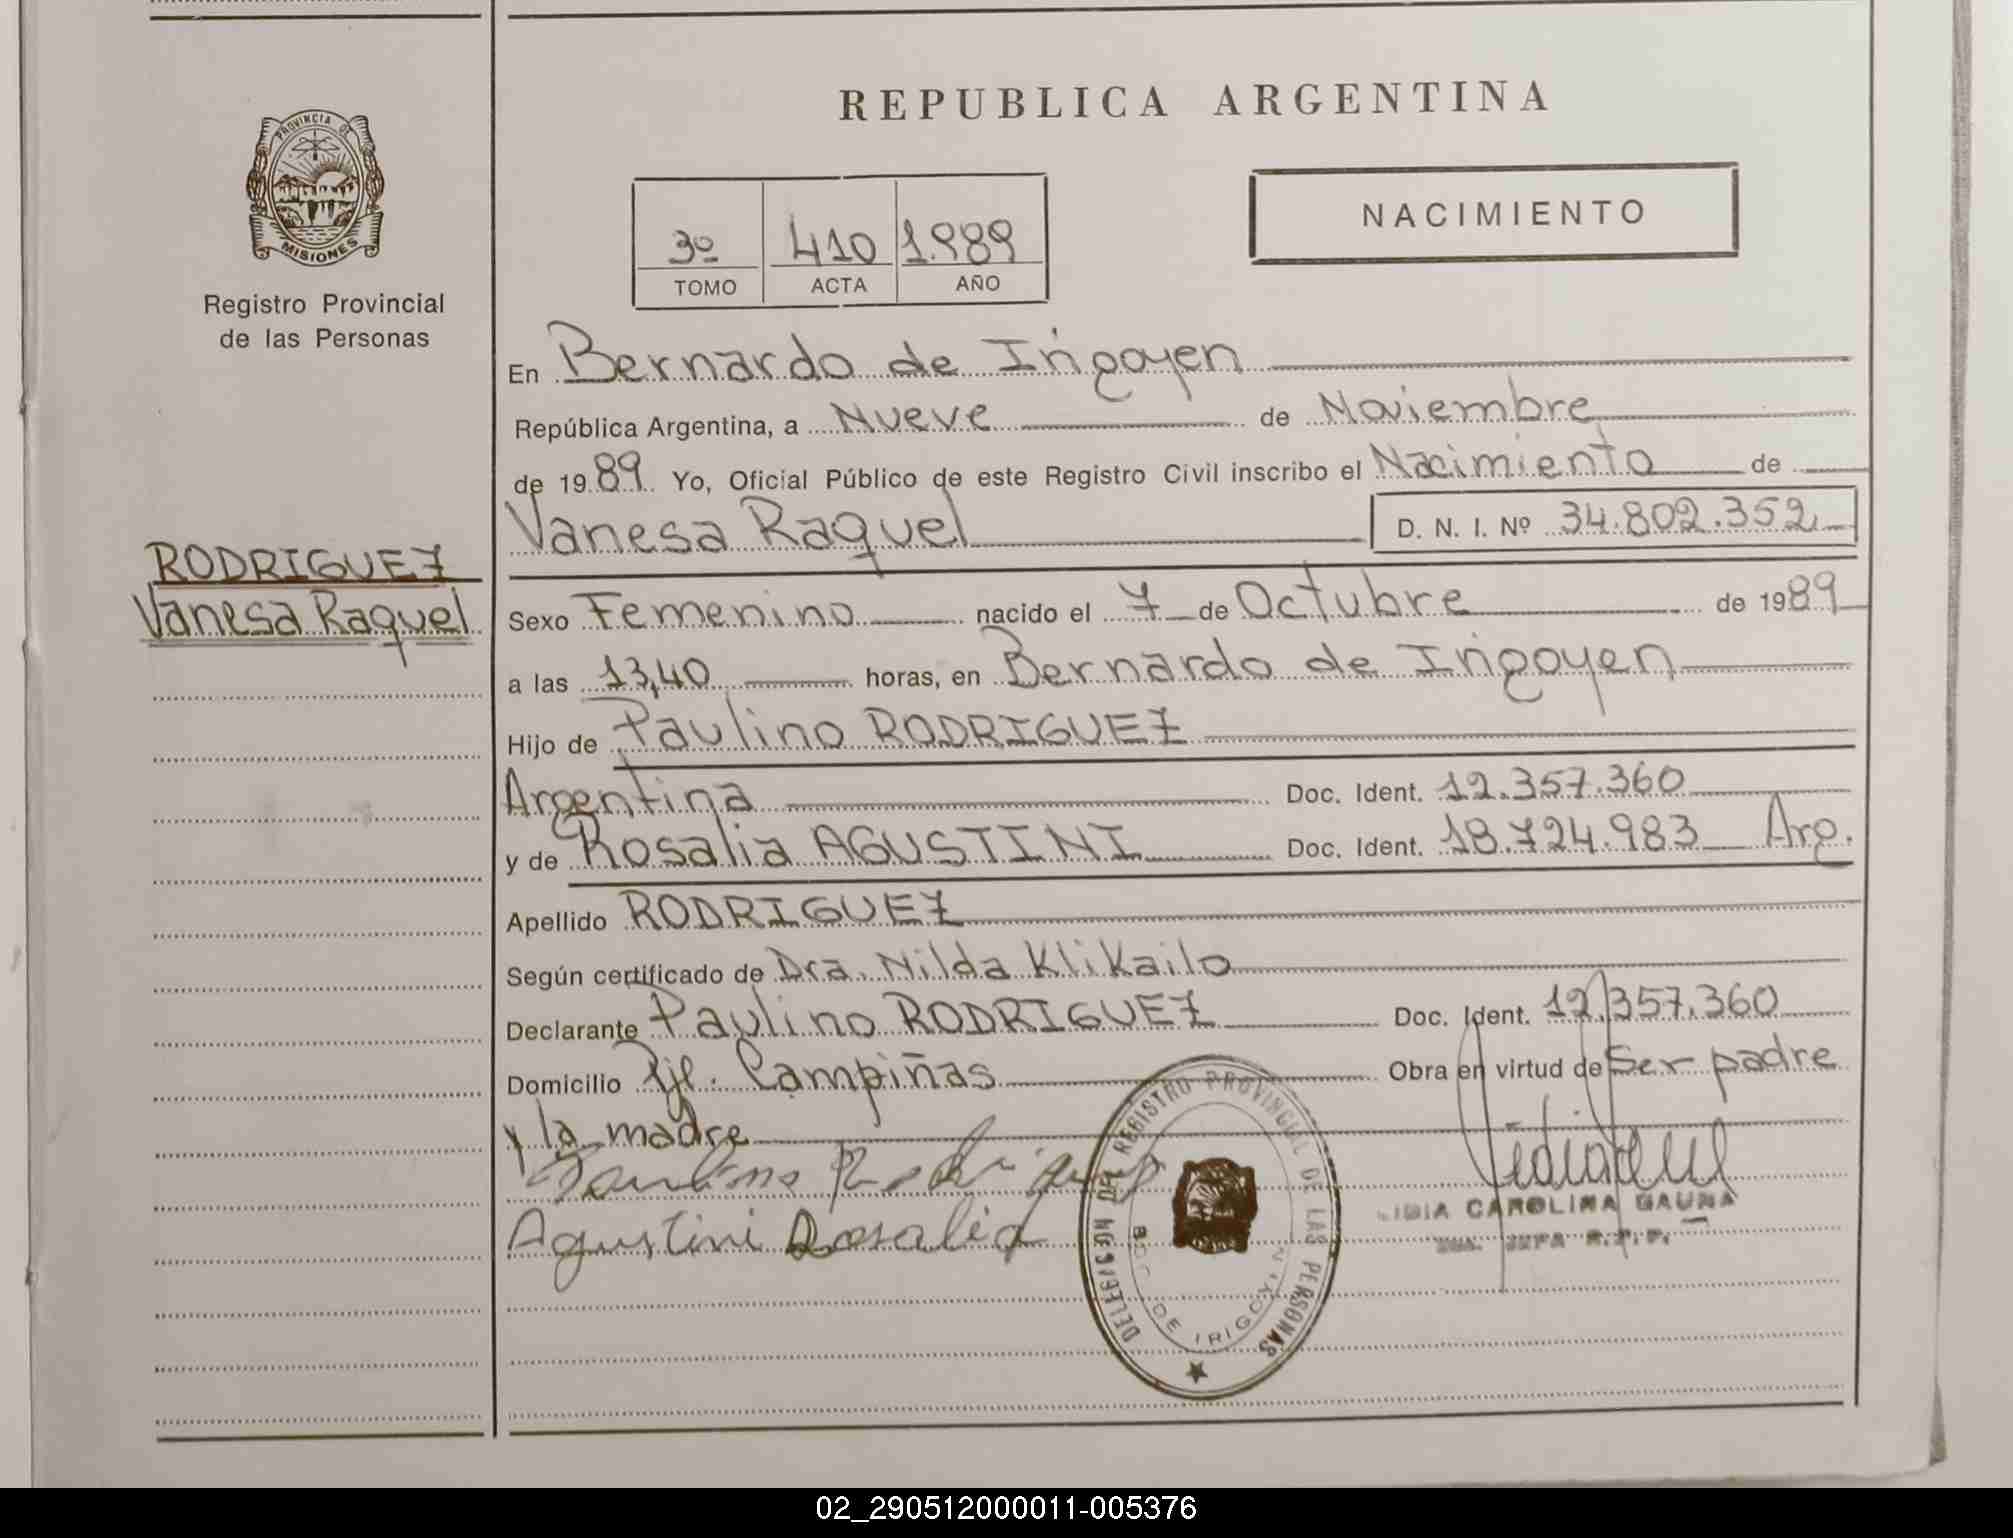 PROVINCIA DE
MISIONES
Registro Provincial
de las Personas
RODRIGUEZ
Vanesa Raquel
REPUBLICA ARGENTINA
3º 410 1.989
TOMO ACTA AÑO
NACIMIENTO
En Bernardo de Irigoyen
República Argentina, a Nueve de Noviembre
de 1989 Yo, Oficial Público de este Registro Civil inscribo el Nacimiento de
Vanesa Raquel D. N. I. Nº 34.802.352
Sexo Femenino nacido el 7 de Octubre de 1989
a las 13,40 horas, en Bernardo de Irigoyen
Hijo de Paulino RODRIGUEZ
Argentina Doc. Ident. 12.357.360
y de Rosalia AGUSTINI Doc. Ident. 18.724.983 Arg.
Apellido RODRIGUEZ
Según certificado de Dra. Nilda Klikailo
Declarante Paulino RODRIGUEZ Doc. Ident. 12.357.360
Domicilio Pje. Campiñas Obra en virtud de Ser padre
y la madre
Paulino Rodriguez
Agustini Rosalia
DELEGACION DEL REGISTRO PROVINCIAL DE LAS PERSONAS
BDO. DE IRIGOYEN
LIDIA CAROLINA GAUNA
JEFA R.P.P.
02_290512000011-005376